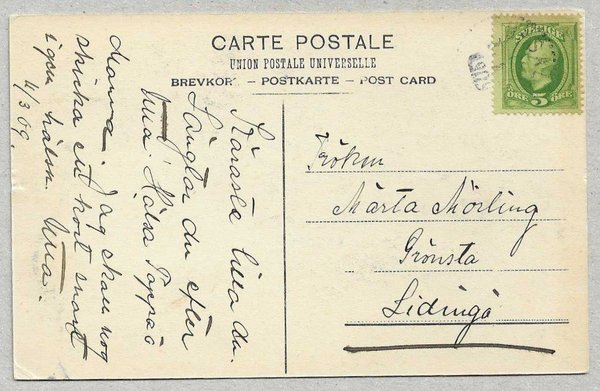 CARTE POSTALE
UNION POSTALE UNIVERSELLE
BREVKORT - POSTKARTE - POST CARD
SVERIGE
ÖRE 5 ÖRE
Käraste lilla du.
Längtar du efter
Mua. Hälsa Pappa
Mama. Jag skall nog
skicka ett kort snart
igen hälsn. Mua.
4/3 09.
Fröken
Märta Mörling
Grönsta
Lidingö